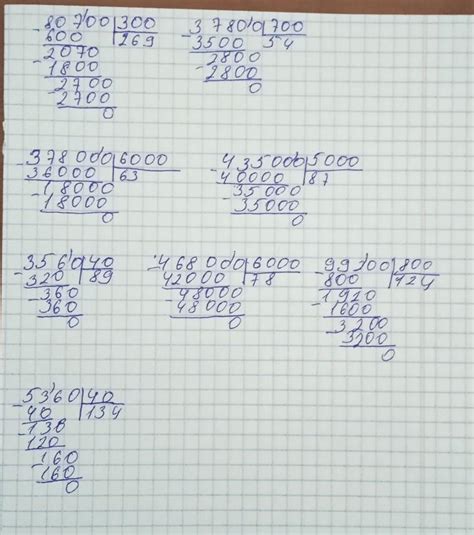 80700 300
600 269
2070
1800
2700
2700
0
37800 700
3500 54
2800
2800
0
378000 6000
36000 63
18000
18000
0
435000 5000
40000 87
35000
35000
0
3560 40
320 89
360
360
0
468000 6000
42000 78
48000
48000
0
99200 800
800 124
1920
1600
3200
3200
0
5360 40
40 134
136
120
160
160
0